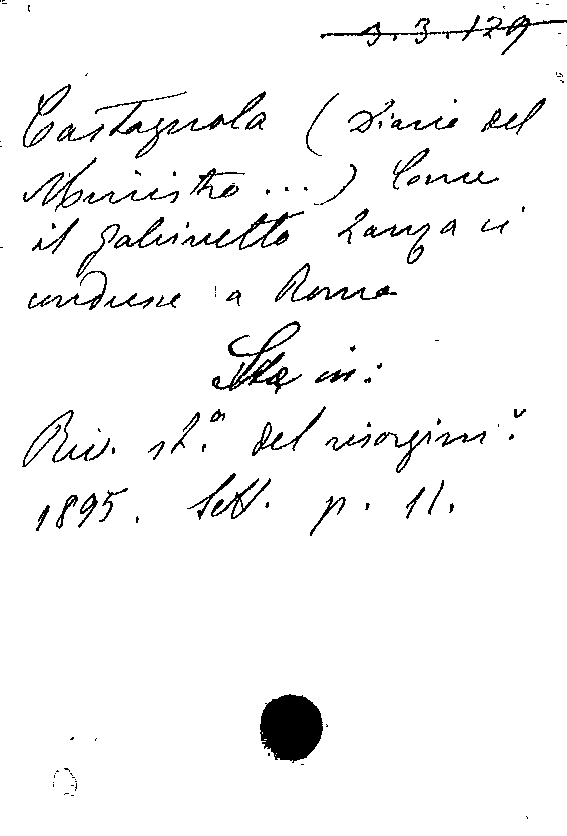 3.3.129
Castagnola (Diario del
Ministro ...) Come
il gabinetto Lanza ci
condusse a Roma
Sta in:
Riv. st.ª del risorgim.º
1895. Sett. p. 11.